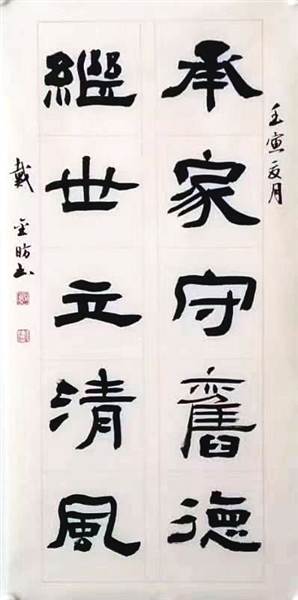 壬寅夏月
承家守舊德
繼世立清風
戴金昉书